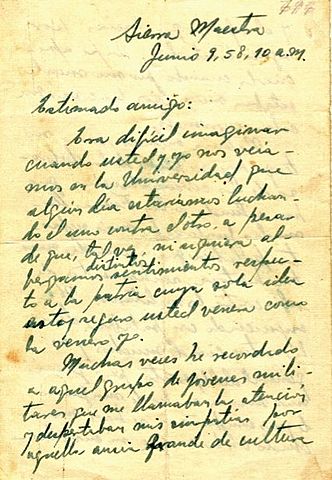 797
Sierra Maestra
Junio 9, 58, 10 a.m.
Estimado amigo:
Era difícil imaginar
cuando usted y yo nos veía-
mos en la Universidad que
algún día estaríamos luchan-
do el uno contra el otro, a pesar
de que, tal vez, ni siquiera al-
bergamos distintos sentimientos respec-
to a la patria cuya sola idea
estoy seguro usted venera como
la venero yo.
Muchas veces he recordado
a aquel grupo de jóvenes mili-
tares que me llamaban la atención
y despertaban mis simpatías por
aquella ansia grande de cultura